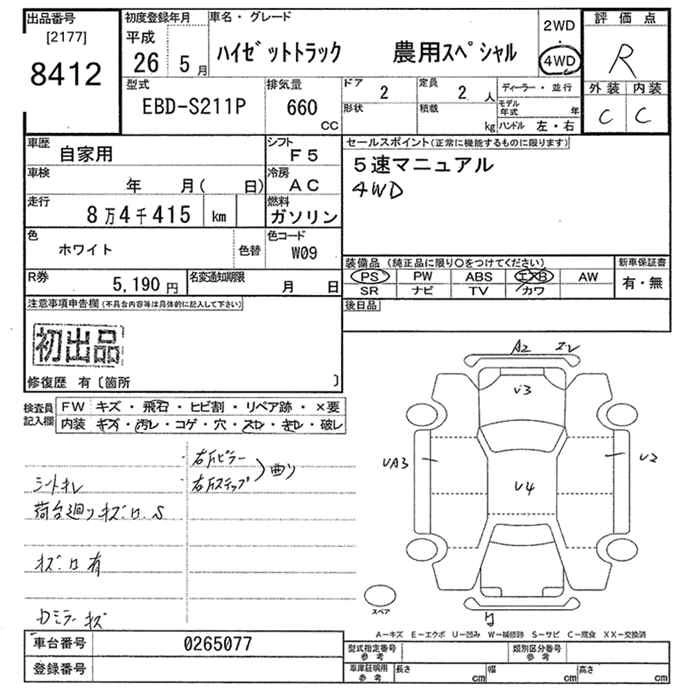 出品番号
[2177]
8412
初度登録年月
平成
26 5 月
車名・グレード
ハイゼットトラック 農用スペシャル
2WD
・
4WD
評価点
R
外装 内装
C C
型式
EBD-S211P
排気量
660
cc
ドア
2
定員
2 人
形状
積載
kg
ディーラー・並行
モデル年式 年
ハンドル 左・右
車歴
自家用
シフト
F5
車検
年 月( 日)
冷房
AC
走行
8万4千415 km
燃料
ガソリン
色
ホワイト
色替
色コード
W09
R券
5,190 円
名変通知期限
月 日
セールスポイント(正常に機能するものに限ります)
5速マニュアル
4WD
装備品 (純正品に限り〇をつけてください)
PS PW ABS エアB AW
SR ナビ TV カワ
新車保証書
有・無
後日品
注意事項申告欄(不具合内容等は具体的に記入して下さい)
初出品
修復歴 有〔箇所 〕
検査員
記入欄
FW キズ・飛石・ヒビ割・リペア跡・×要
内装 キズ・汚レ・コゲ・穴・スレ・キレ・破レ
右Fピラー
右Fステップ
曲り
シートキレ
荷台廻りキズ凹S
キズ凹有
Dミラーキズ
A2
V3
VA3
V4
V2
スペア
A－キズ E－エクボ U－凹み W－補修跡 S－サビ C－腐食 XX－交換済
車台番号 0265077
登録番号
型式指定番号
参考
類別区分番号
参考
車庫証明用
参考
長さ cm
幅 cm
高さ cm